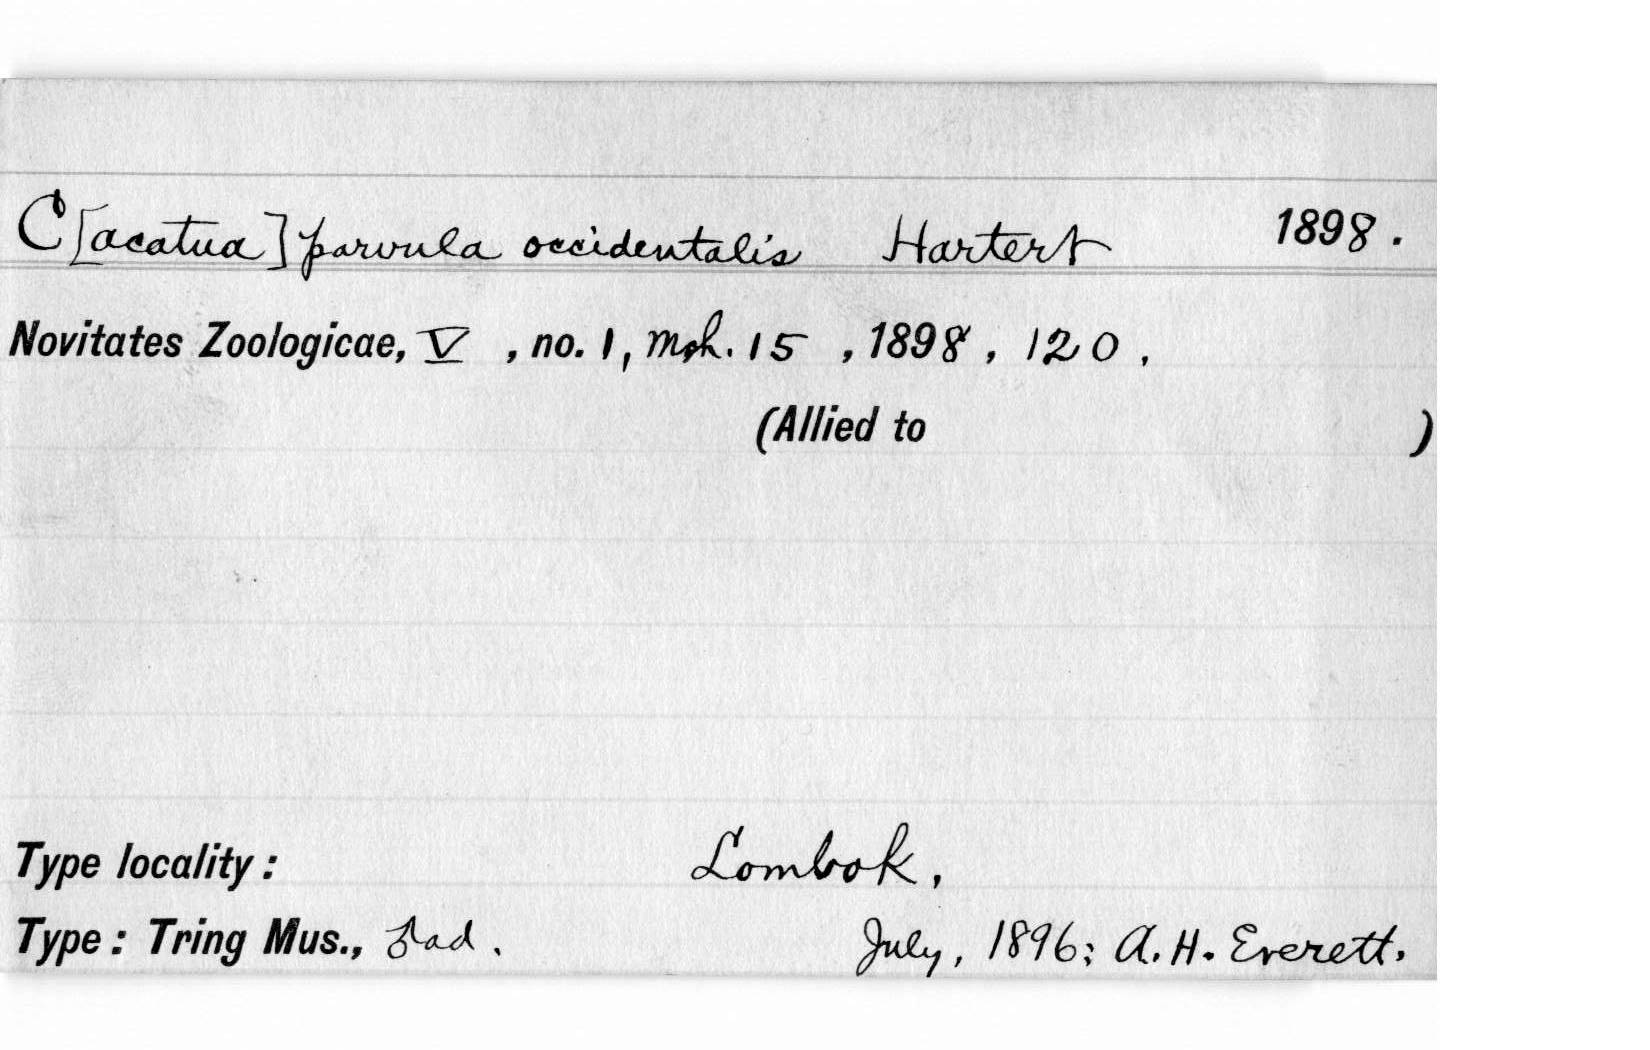 C[acatua] parvula occidentalis Hartert 1898.
Novitates Zoologicae, V, no. 1, Mch. 15, 1898, 120.
(Allied to )
Type locality: Lombok,
Type: Tring Mus., ad. July, 1896; A. H. Everett.